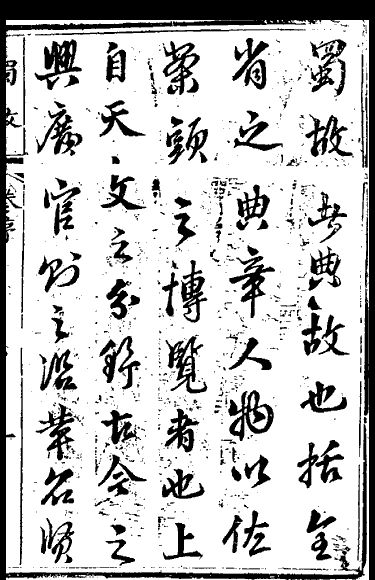 蜀故典故也括全
省之典章人物以佐
頭之博覽者也上
自天文之分野古今之
興官之沿革名賢
蜀故
序
一